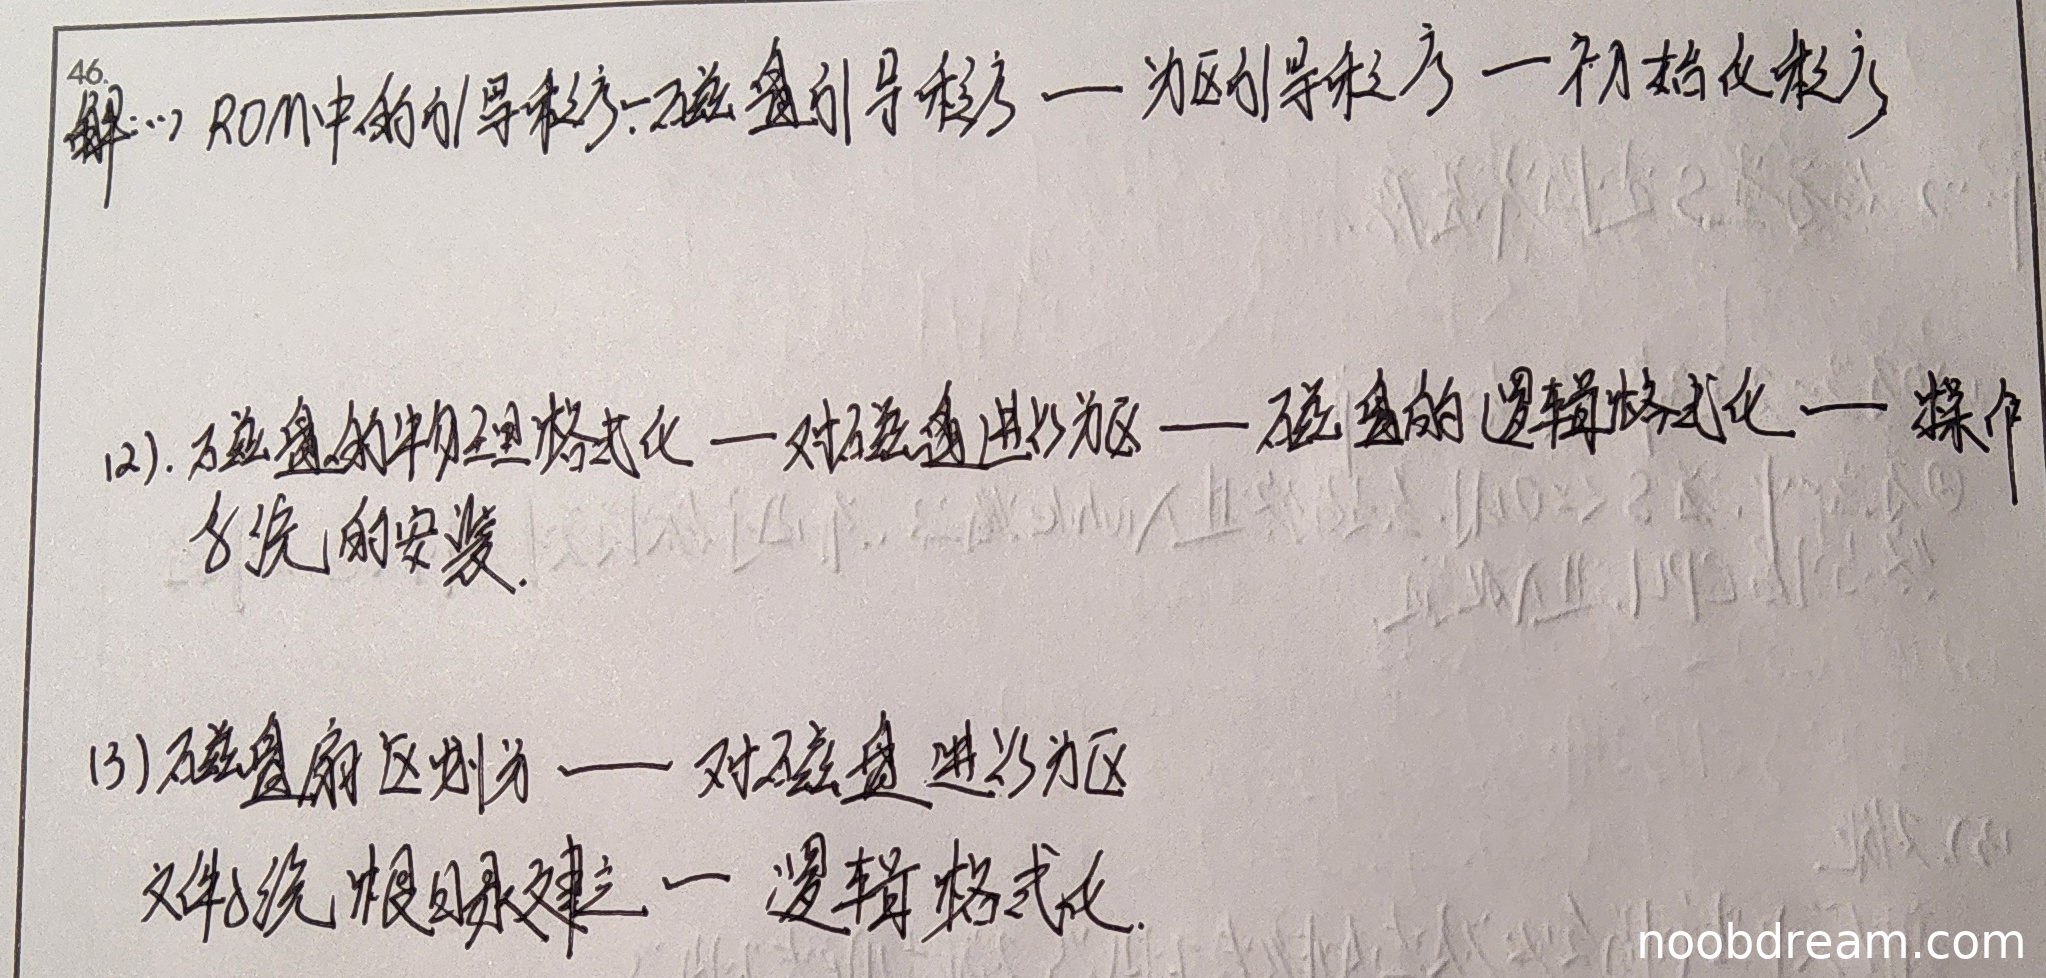 46.
解:(1) ROM中的引导程序—磁盘引导程序—分区引导程序—初始化程序
(2).磁盘的物理格式化—对磁盘进行分区—磁盘的逻辑格式化—操作
系统的安装.
(3)磁盘扇区划分—对磁盘进行分区
文件系统根目录建立—逻辑格式化.
noobdream.com